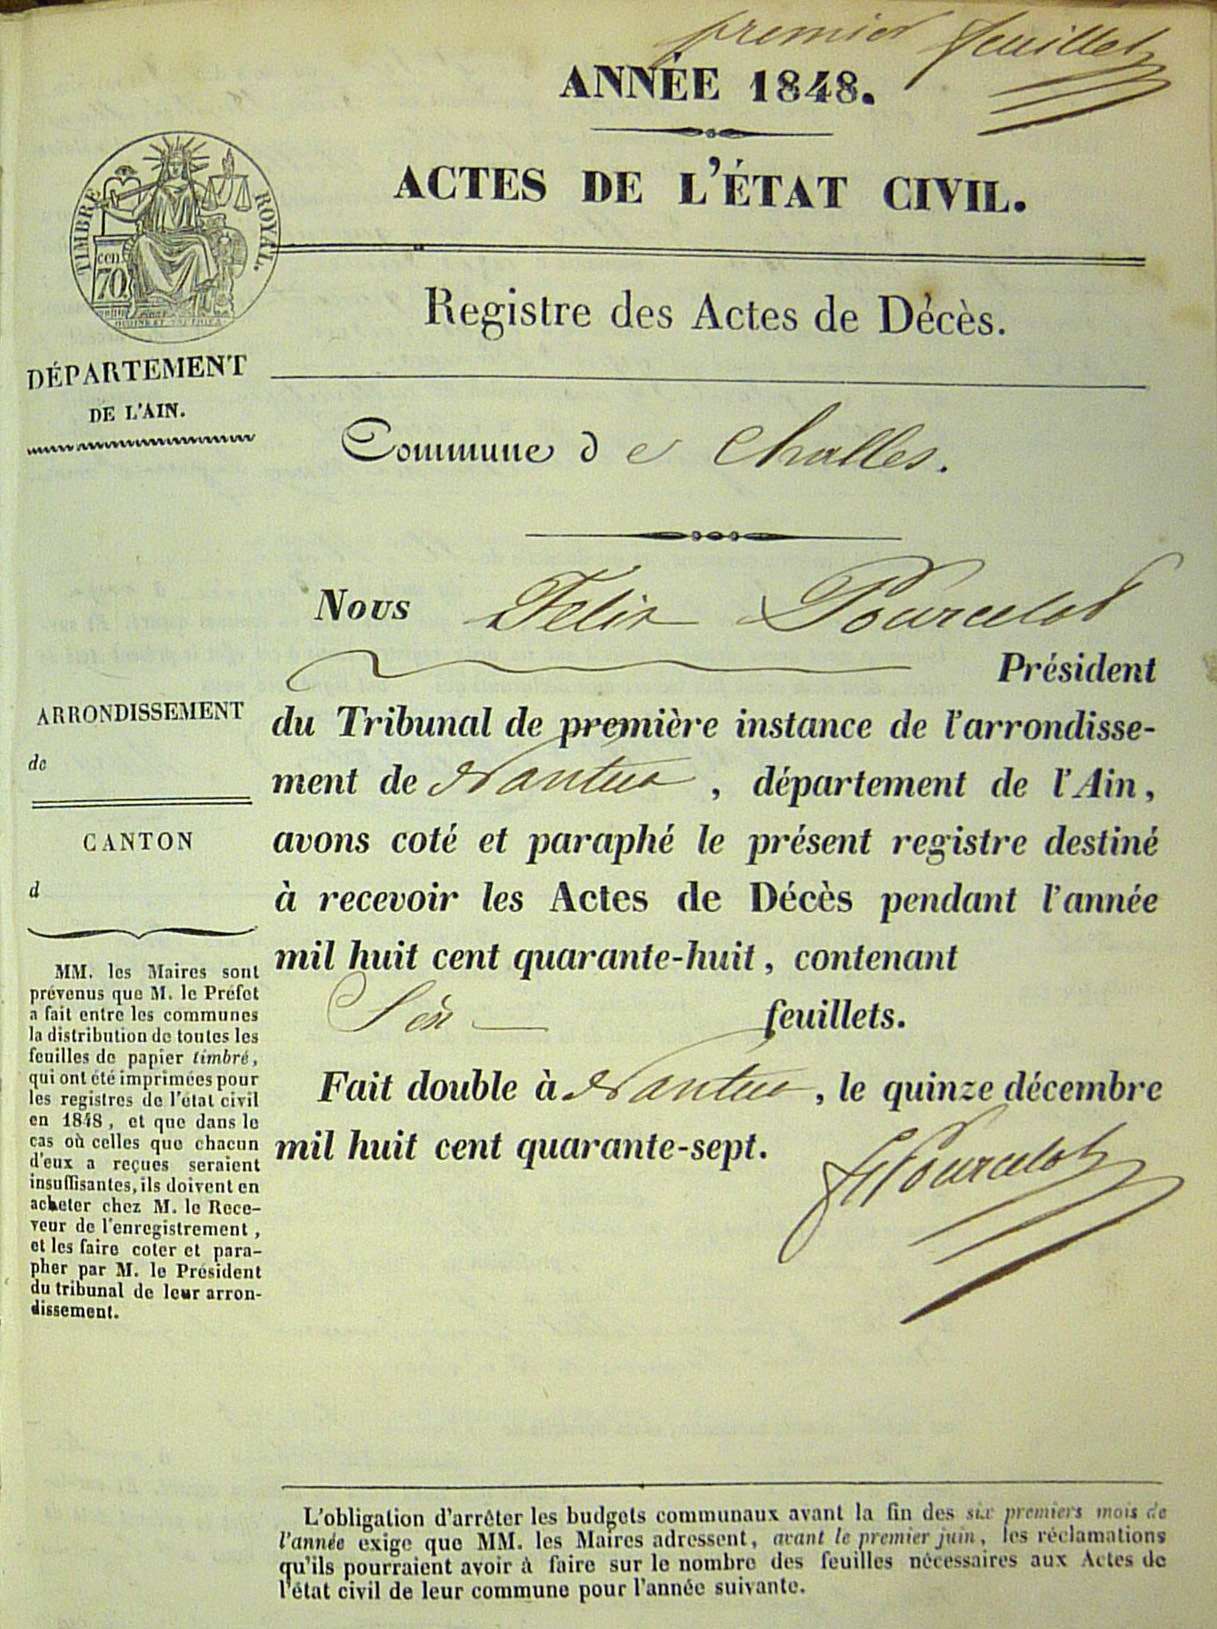 premier feuillet
ANNÉE 1848.
ACTES DE L'ÉTAT CIVIL.
TIMBRE ROYAL.
cen.
70
Registre des Actes de Décès.
DÉPARTEMENT
DE L'AIN.
Commune de Challes.
Nous Felix Pourcelot
Président
du Tribunal de première instance de l'arrondisse-
ment de Nantua, département de l'Ain,
avons coté et paraphé le présent registre destiné
à recevoir les Actes de Décès pendant l'année
mil huit cent quarante-huit, contenant
Six feuillets.
Fait double à Nantua, le quinze décembre
mil huit cent quarante-sept.
Pourcelot
ARRONDISSEMENT
de
CANTON
d
MM. les Maires sont
prévenus que M. le Préfet
a fait entre les communes
la distribution de toutes les
feuilles de papier timbré,
qui ont été imprimées pour
les registres de l'état civil
en 1848, et que dans le
cas où celles que chacun
d'eux a reçues seraient
insuffisantes, ils doivent en
acheter chez M. le Rece-
veur de l'enregistrement,
et les faire coter et para-
pher par M. le Président
du tribunal de leur arron-
dissement.
L'obligation d'arrêter les budgets communaux avant la fin des six premiers mois de
l'année exige que MM. les Maires adressent, avant le premier juin, les réclamations
qu'ils pourraient avoir à faire sur le nombre des feuilles nécessaires aux Actes de
l'état civil de leur commune pour l'année suivante.